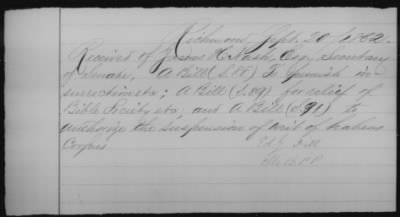 Richmond, Sept. 20 / 1862.
Received of James H. Nash, Esq, Secretary
of Senate, A Bill (S. 88) To punish in-
surrection &c; A Bill (S. 89) for relief of
Bible Society &c; and A Bill (S. 91) to
authorize the suspension of writ of habeas
Corpus